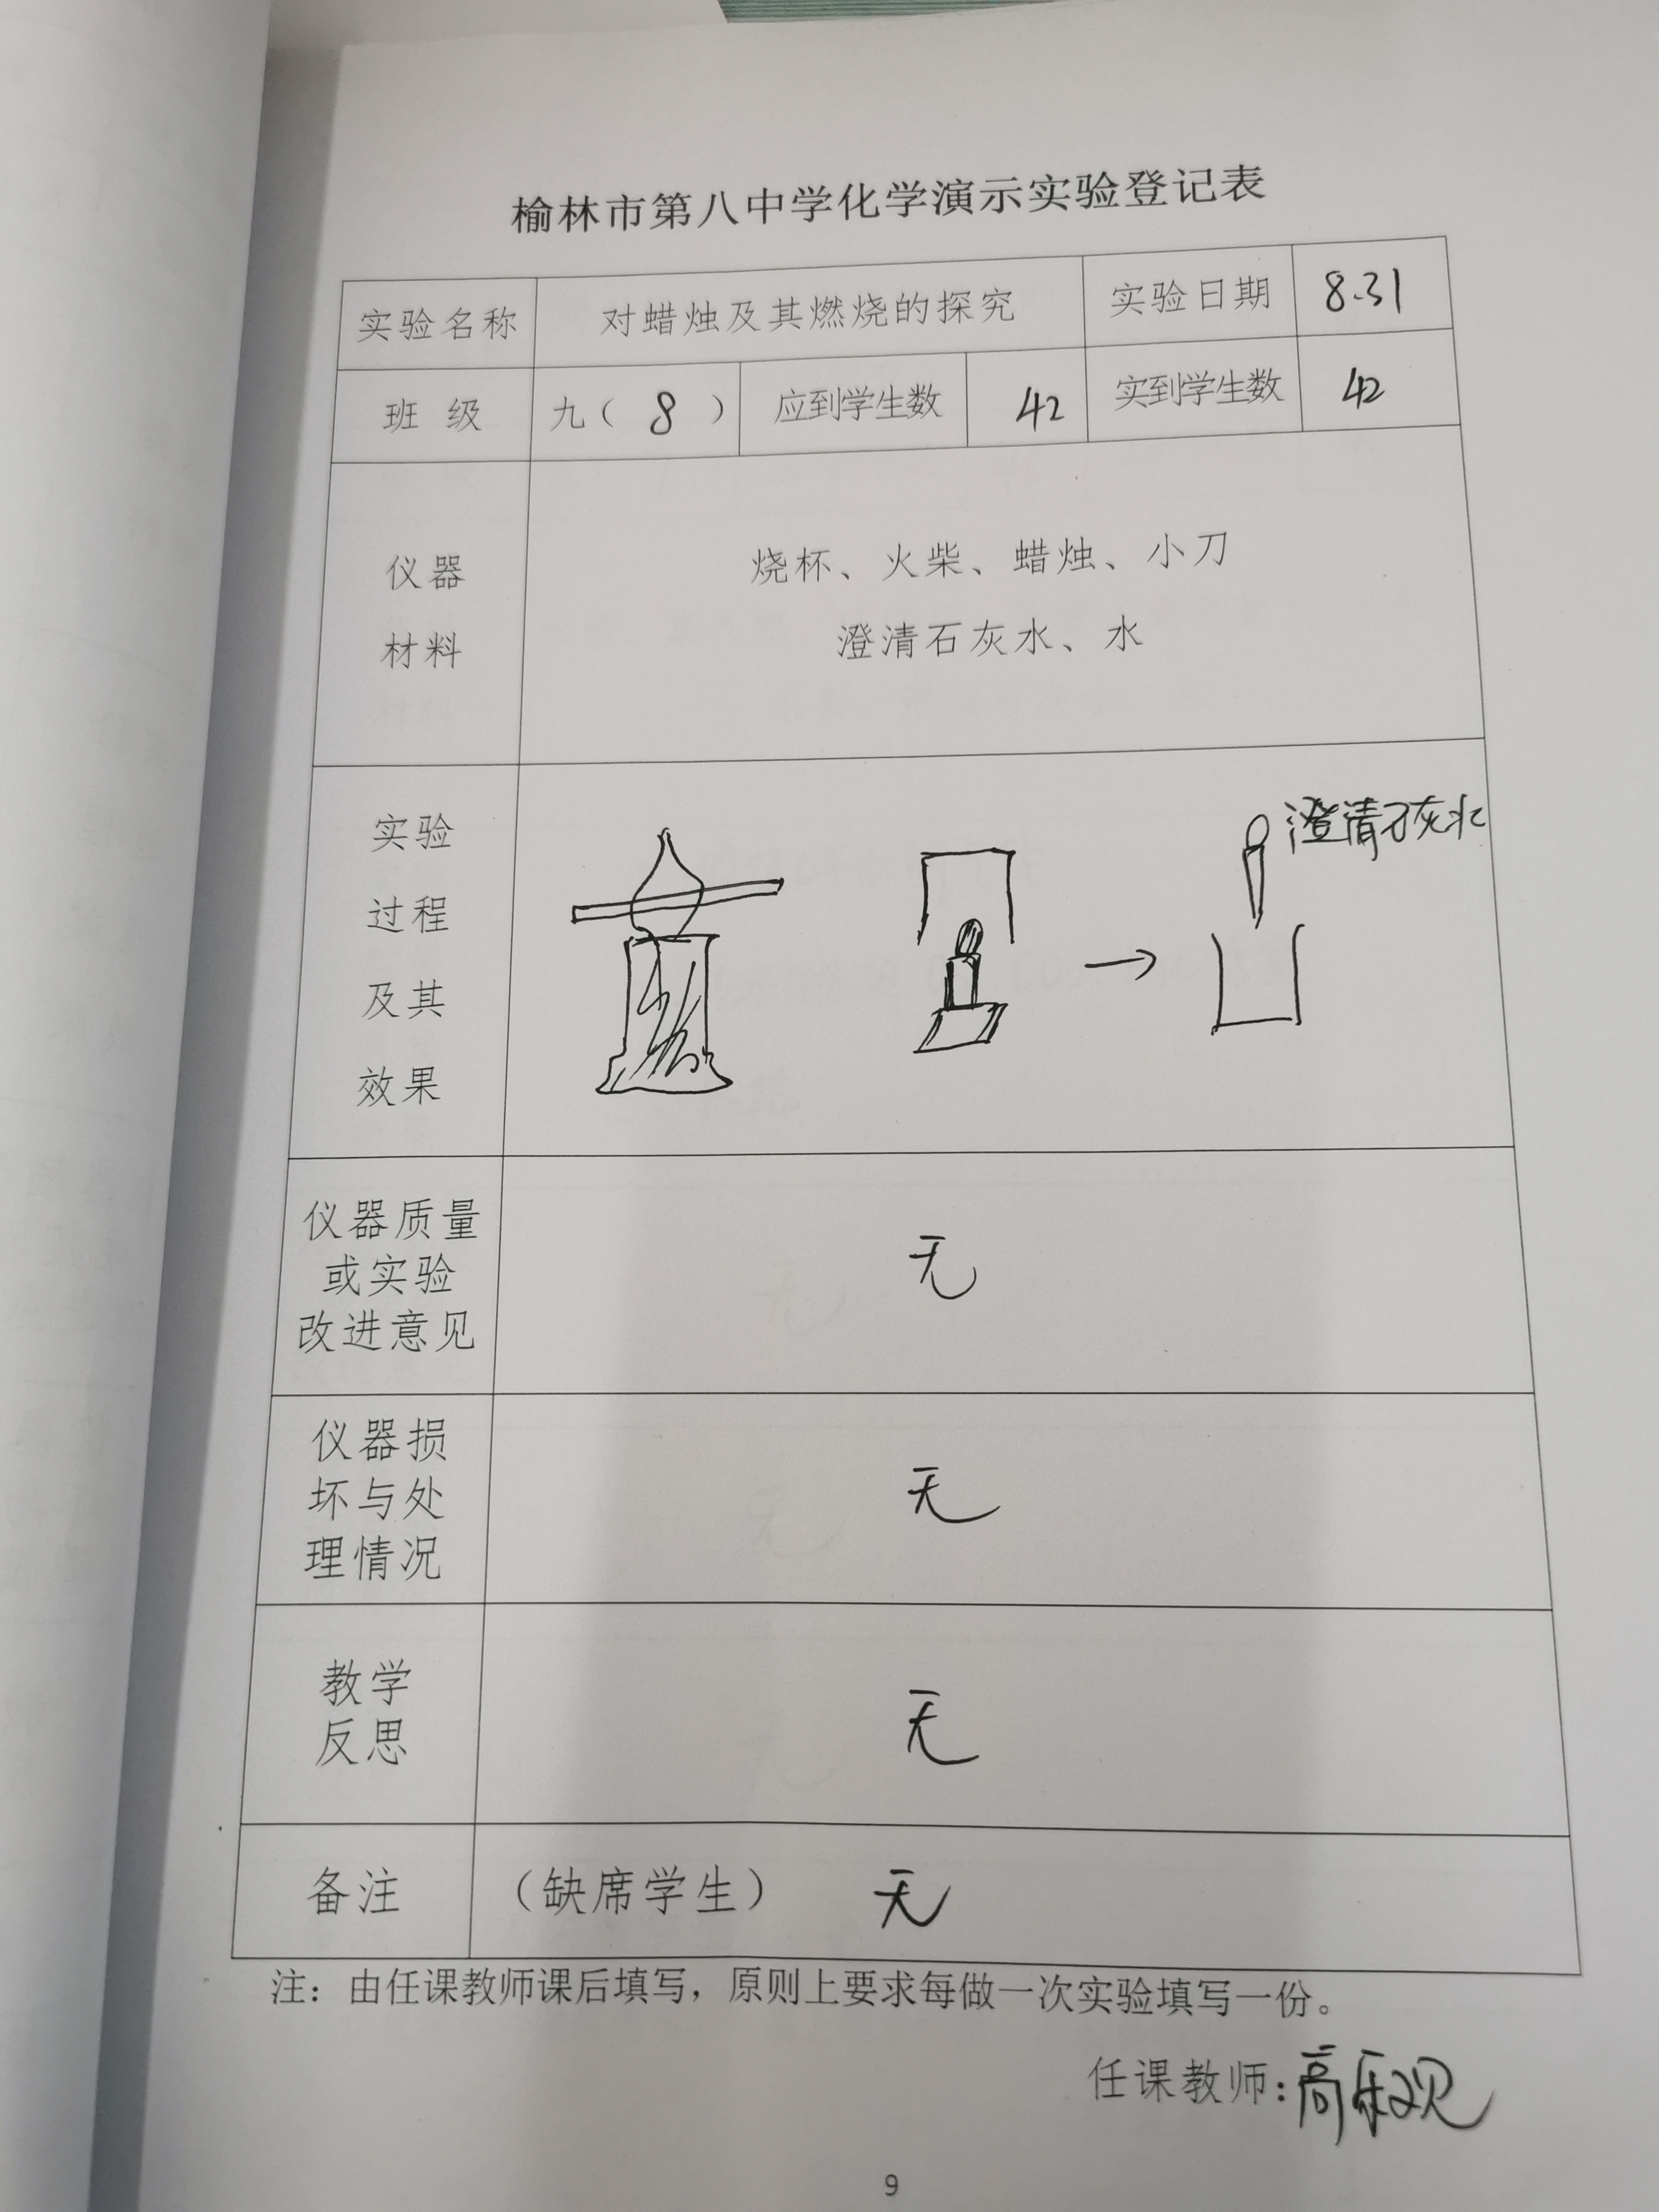 榆林市第八中学化学演示实验登记表
实验名称 对蜡烛及其燃烧的探究 实验日期 8.31
班 级 九（8） 应到学生数 42 实到学生数 42
仪器
材料
烧杯、火柴、蜡烛、小刀
澄清石灰水、水
实验
过程
及其
效果
澄清石灰水
仪器质量
或实验
改进意见
无
仪器损
坏与处
理情况
无
教学
反思
无
备注 （缺席学生） 无
注：由任课教师课后填写，原则上要求每做一次实验填写一份。
任课教师：高乐观
9